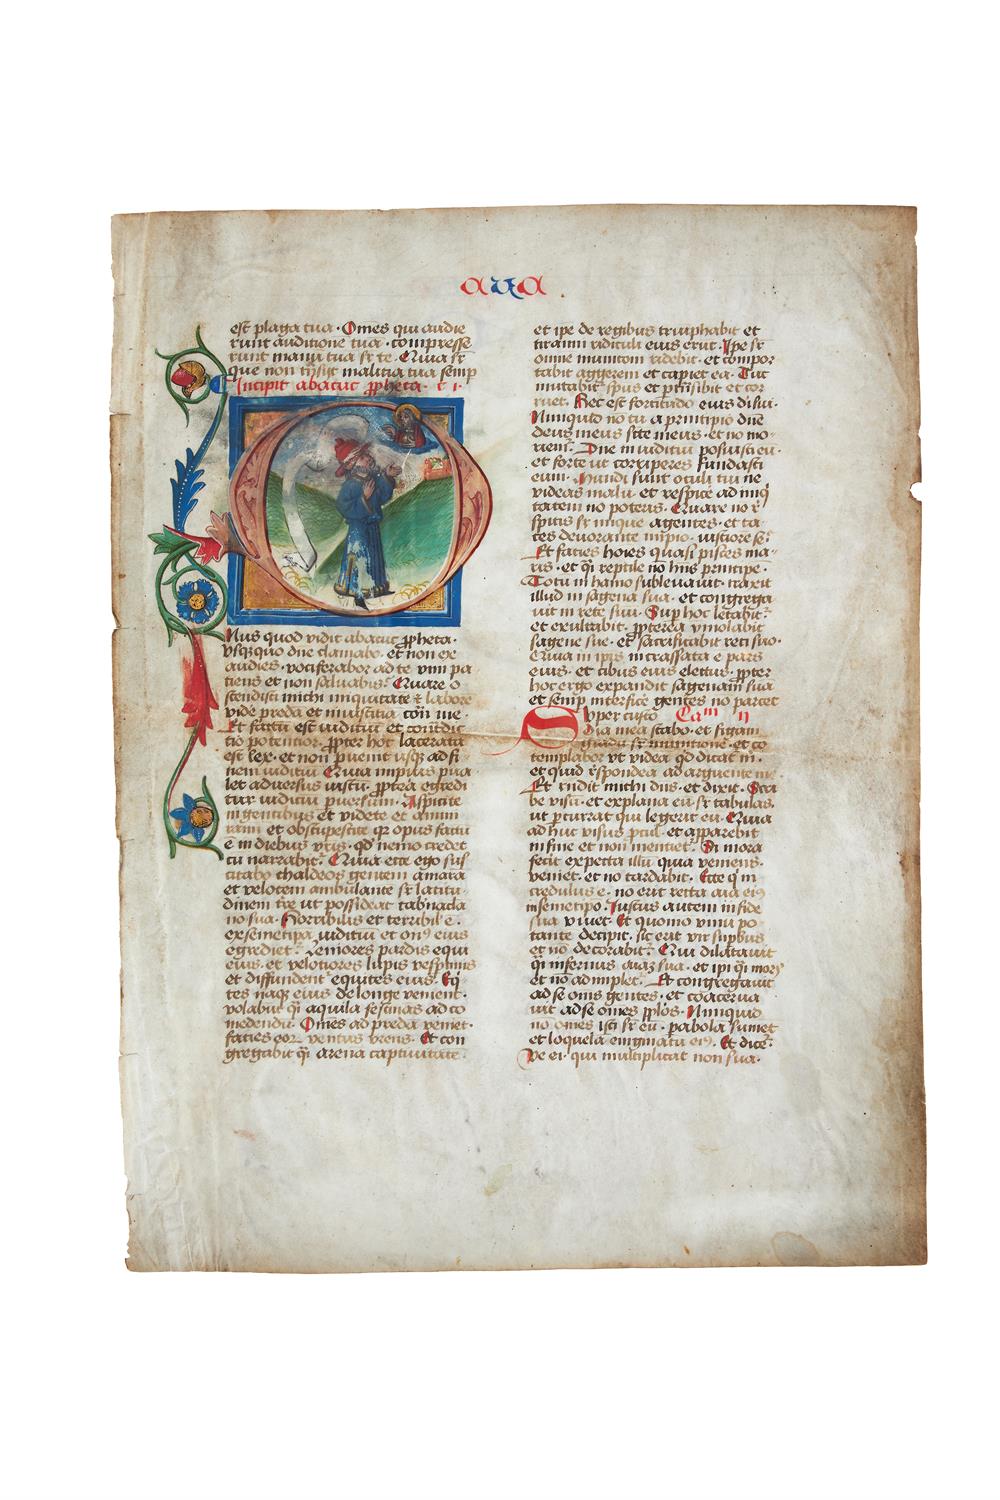 aua
est plaga tua · Omes qui audie
runt auditione tua · compresse
runt manu tua sr te · Quia sr
que non tnsijt malicia tua semp
Incipit abacuc ppheta · c i ·
Nus quod vidit abacuc ppheta ·
vsqzquo dne clamabo · et non ex
audies · vociferabor ad te vim pa
tiens et non saluabis? Quare o
stendisti michi iniquitate et labore
vide preda et iniusticia con me ·
Et factu est iudiciu et contdic
tio potencior · ppter hoc lacerata
est lex · et non puenit usqz ad fi
nem iudiciu Quia impius pua
let adversus iustu · pptea egredi
tur iudiciu pversum · Aspicite
in gentibus et videte et amim
ram et obstupescite qz opus factu
e in diebus vris · qd nemo credet
cu narrabit · Quia ecce ego sus
citabo chaldeos gentem amara
et velocem ambulante sr latitu
dinem tre ut possideat tabnacla
no sua · Horribilis et terribil e ·
ex semetipa iudiciu et on9 eius
egrediet · Leuiores pardis equi
eius · et velociores lupis vesptinis
et diffundent equites eius · Eq
tes naqz eius de longe venient ·
volabut qi aquila festinas ad co
medendu · Omes ad preda veniet ·
facies eoz ventus vrens · Et con
gregabit qi arena captiuitate ·
et ipe de regibus triuphabit et
tiranni ridiculi eius erut · Ipe sr
omne municom ridebit · et compor
tabit aggerem et capiet ea · Tuc
mutabit spus et ptrasibit et cor
ruet · Hec est fortitudo eius dei sui ·
Nunquid no tu a principio dne
deus meus scte meus · et no mo
riem · Dne in iudiciu posuisti eu ·
et forte ut corriperes fundasti
eum · Mundi sunt oculi tui ne
videas malu · et respice ad iniq
tatem no poteris · Quare no r
spicis sr inique agentes · et ta
ces devorante impio · iustiore se?
Et facies hoies quasi pisces ma
ris · et qi reptile no hns principe ·
Totu in hamo subleuauit · traxit
illud in sagena sua · et congrega
uit in rete suu · Sup hoc letabit
et exultabit · ppterea ymolabit
sagene sue · et sacrificabit reti suo ·
Quia in ipis incrassata e pars
eius · et cibus eius electus · ppter
hoc ergo expandit sagenam sua
et semp interfice gentes no parcet
Super custo Cam ii
dia mea stabo · et figam
gradu sr munitione · et co
templabor ut videa qd dicat m ·
et quid rspondea ad arguente me ·
Et rndit michi dns · et dixit · Scri
be visu · et explana eu sr tabulas
ut pcurrat qui legerit eu · Quia
ad huc visus pcul · et apparebit
in fine et non mentiet · Si mora
fecit expecta illu quia veniens ·
veniet · et no tardabit · Ecce q in
credulus e · no erit recta aia ei9
in semetipo · Iustus autem in fide
sua vivet · Et quomo vinu po
tante decipit · sic erit vir supbus
et no decorabit · Qui dilatauit
qi infernus aiaz sua · et ipi qi mors
et no adimplet · Et congregauit
ad se oms gentes · et coacerua
uit ad se omes pplos · Nunquid
no omes isti sr eu · pabola sumet
et loquela enigmatu ei9 · Et dicet
Ve ei · qui multiplicat non sua ·